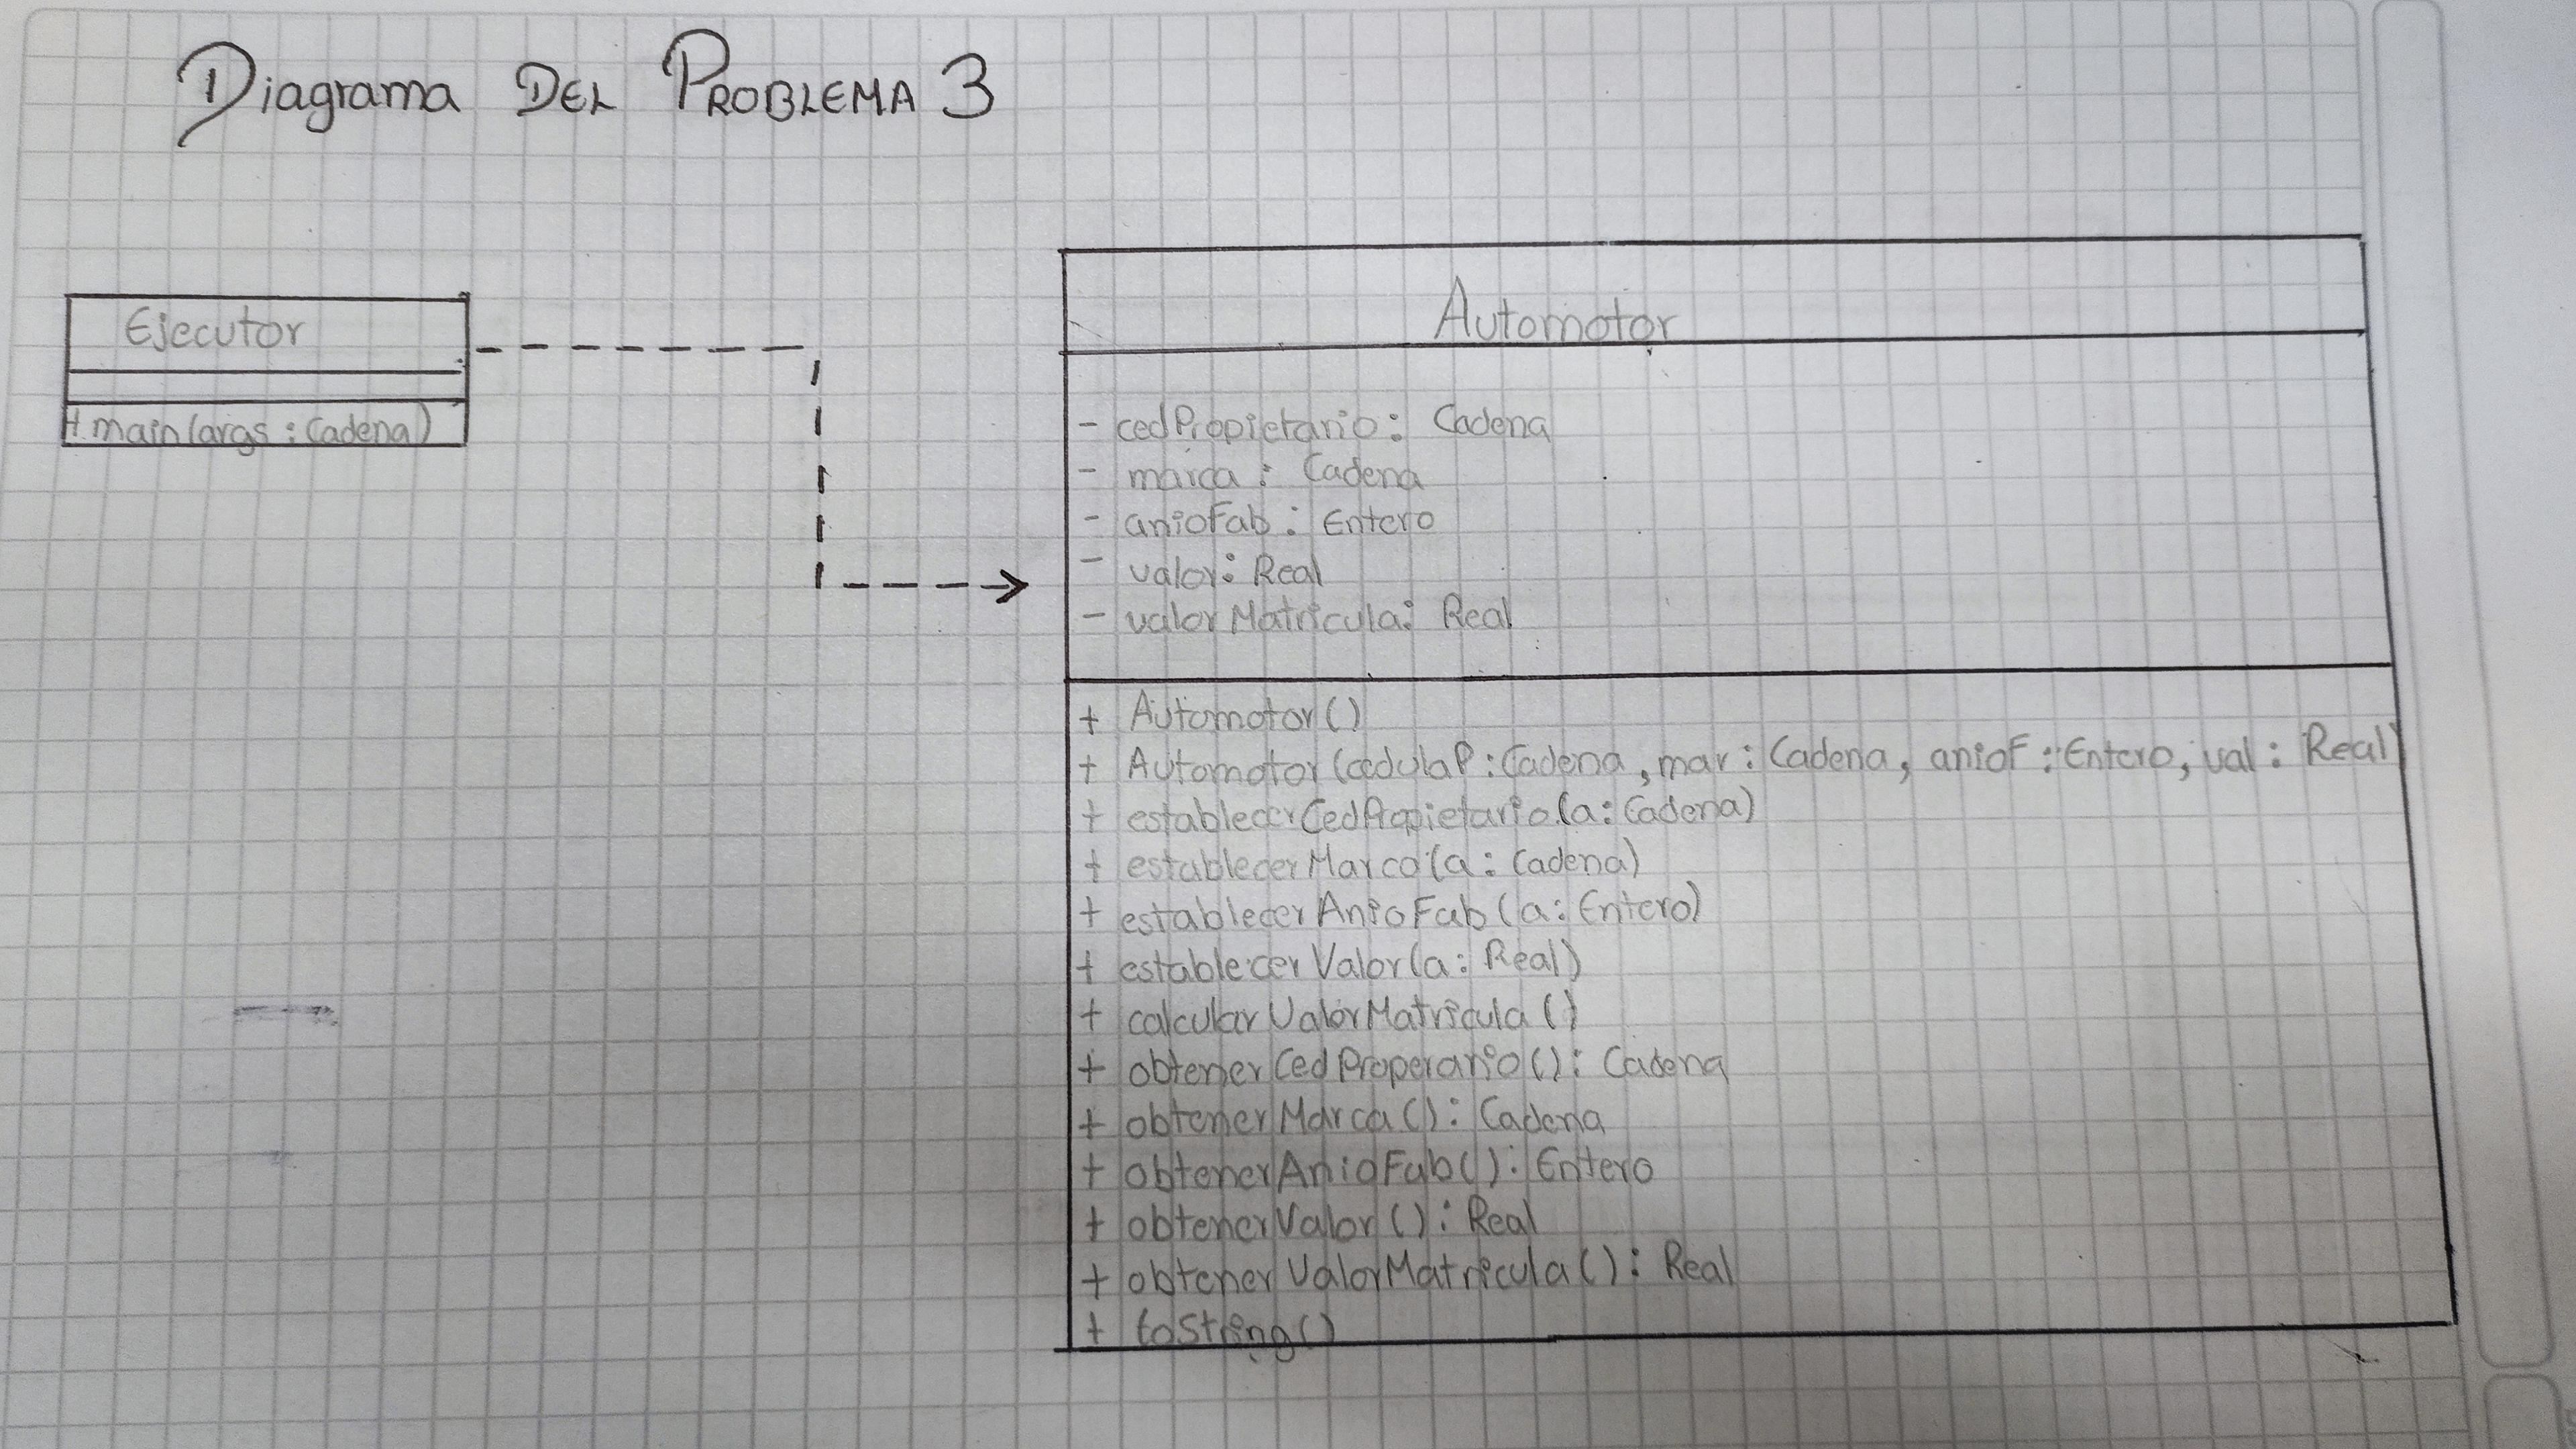 Diagrama DEL PROBLEMA 3
Ejecutor
+ main(args : Cadena)
Automotor
- cedPropietario: Cadena
- marca : Cadena
- anioFab : Entero
- valor: Real
- valorMatricula: Real
+ Automotor()
+ Automotor(cedulaP : Cadena, mar : Cadena, anioF : Entero, val : Real)
+ establecerCedPropietario(a: Cadena)
+ establecerMarca(a : Cadena)
+ establecerAnioFab(a: Entero)
+ establecerValor(a: Real)
+ calcularValorMatricula()
+ obtenerCedProperario(): Cadena
+ obtenerMarca(): Cadena
+ obtenerAnioFab(): Entero
+ obtenerValor(): Real
+ obtenerValorMatricula(): Real
+ toString()